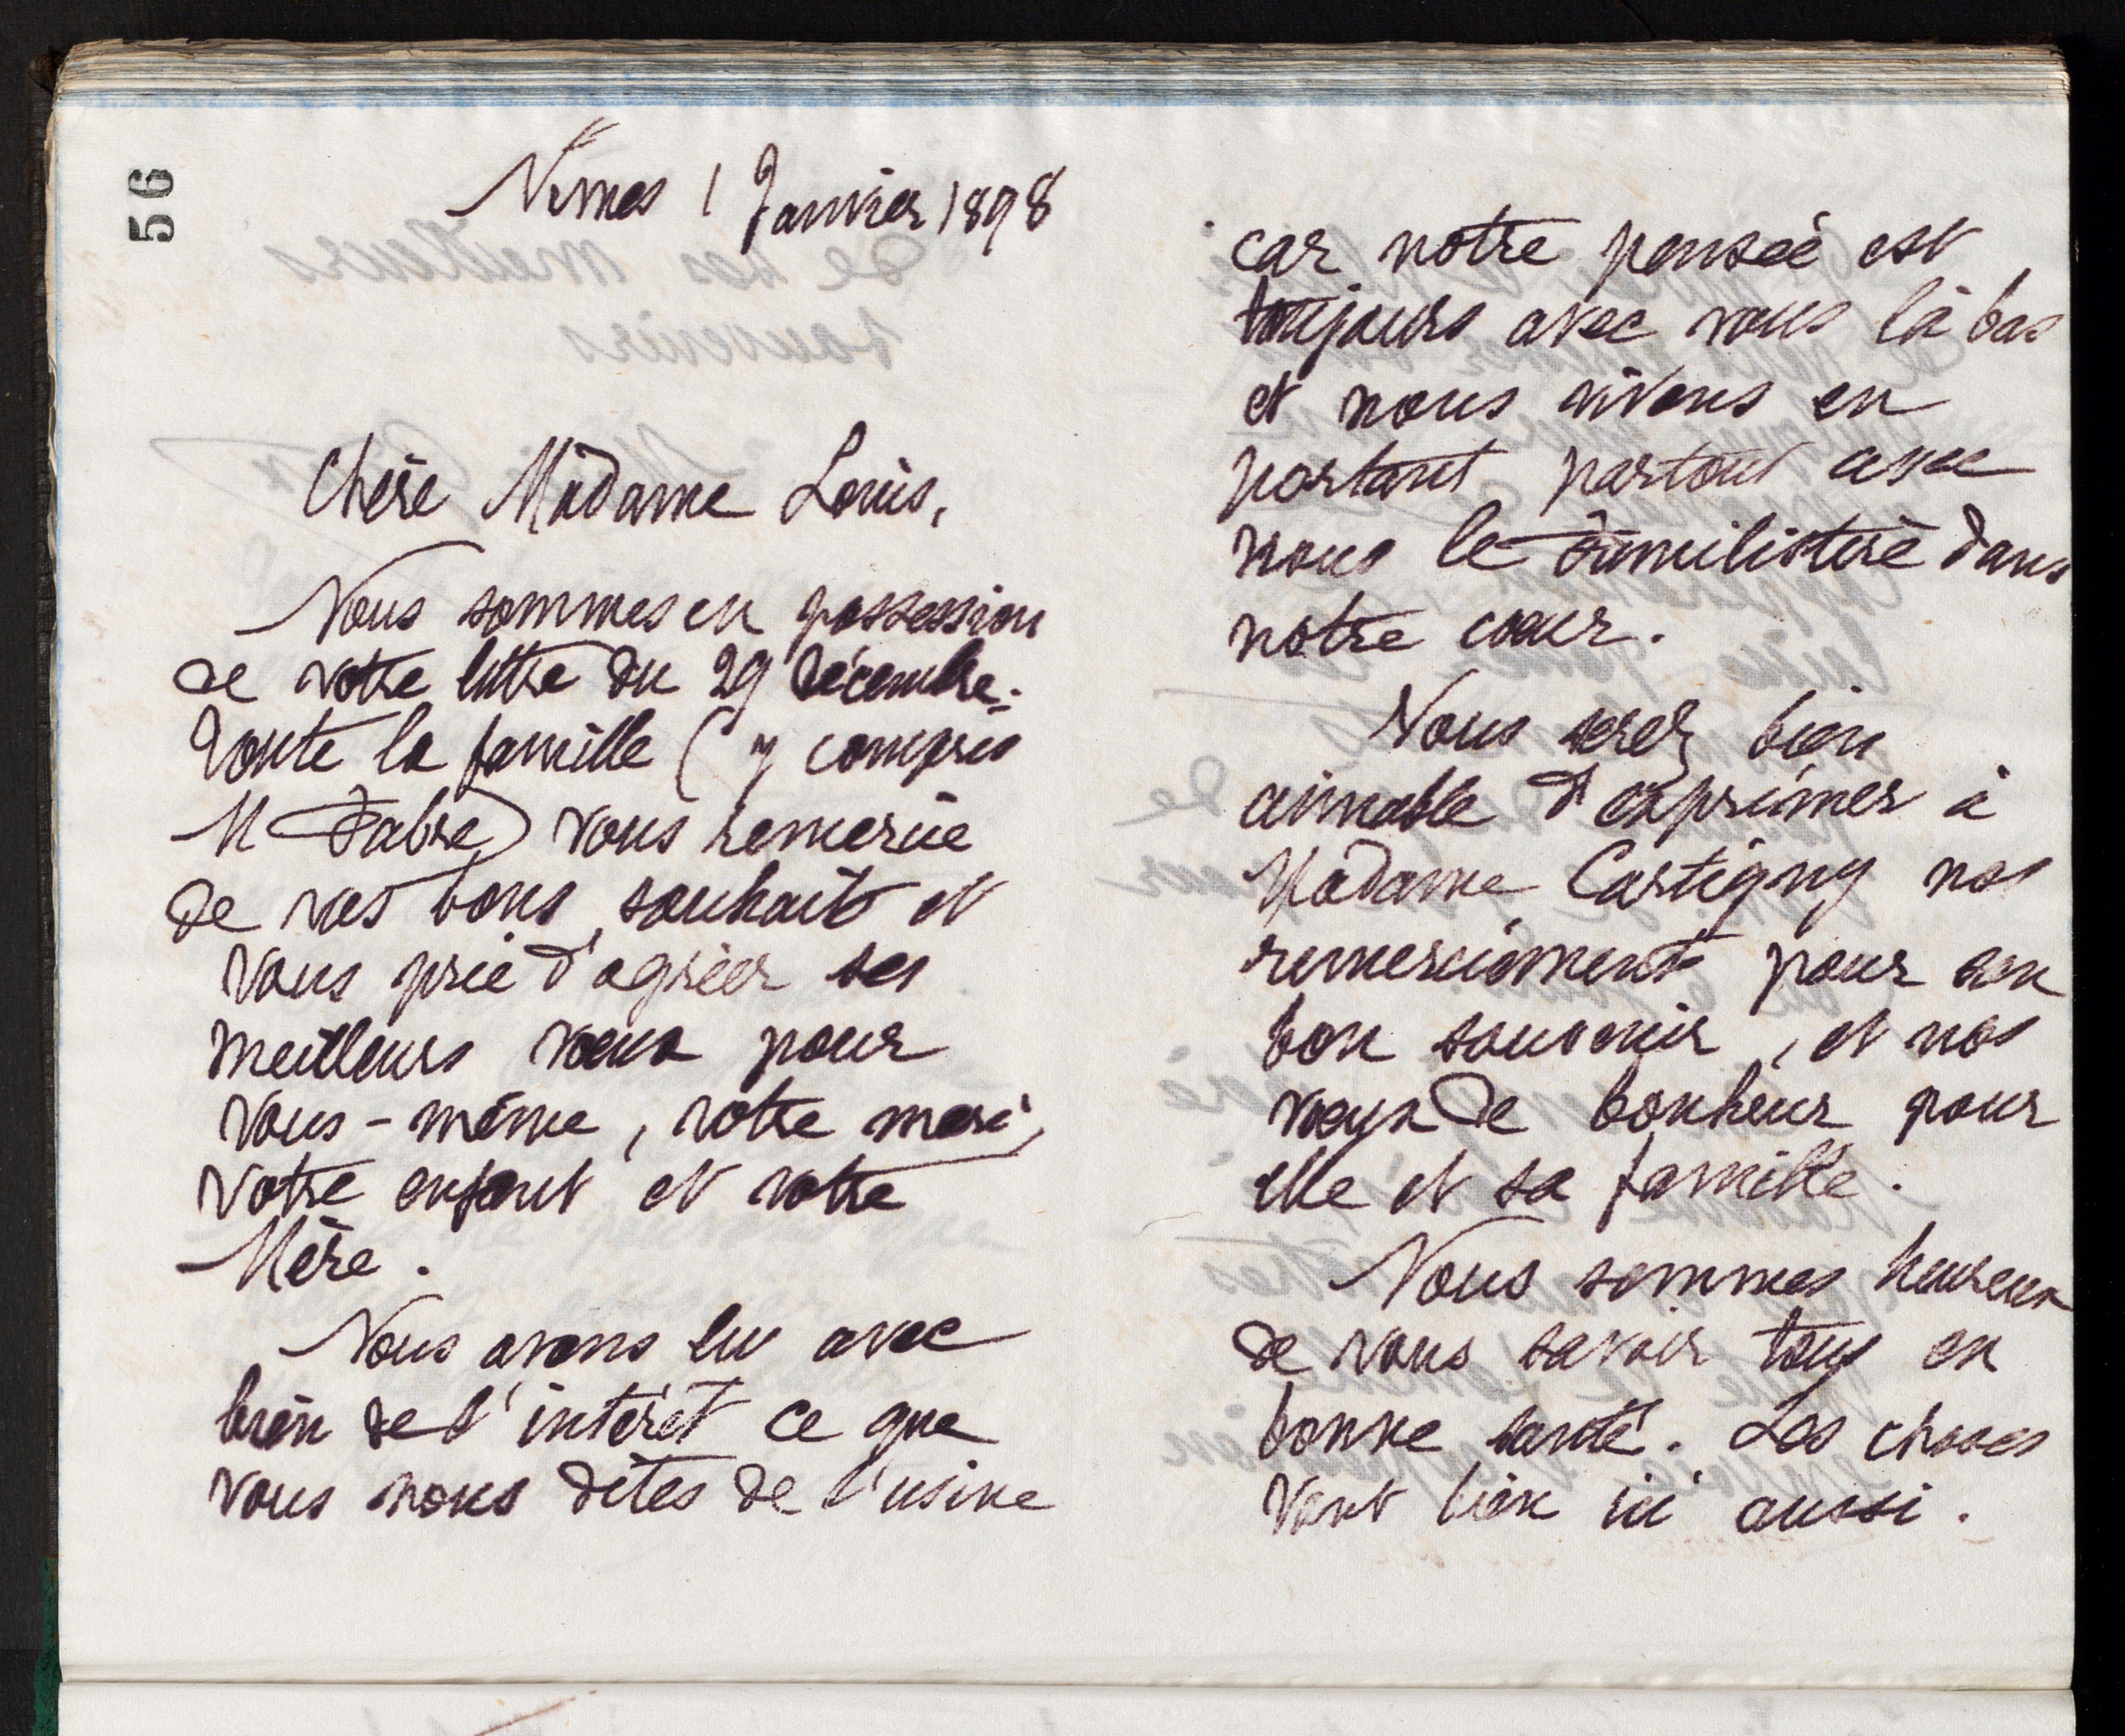 56
Nimes 1 Janvier 1898
Chère Madame Louis,
Nous sommes en possession
de votre lettre du 29 décembre.
Toute la famille (y compris
M Fabre) vous remercie
de vos bons souhaits et
vous prie d'agréer ses
meilleurs vœux pour
vous-même, votre mari,
votre enfant et votre
Mère.
Nous avons lu avec
bien de l'intérêt ce que
vous nous dites de l'usine
car notre pensée est
toujours avec vous là bas
et nous vivons en
portant partout avec
nous le Familistère dans
notre cœur.
Vous serez bien
aimable d'exprimer à
Madame Cartigny nos
remerciements pour son
bon souvenir, et nos
vœux de bonheur pour
elle et sa famille.
Nous sommes heureux
de vous savoir tous en
bonne santé. Les choses
vont bien ici aussi.